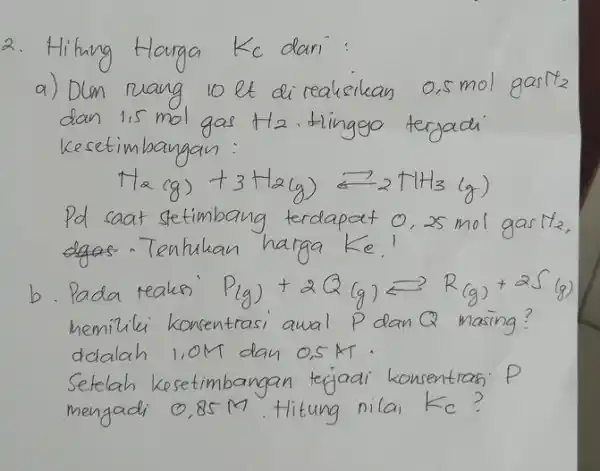 2. Hitung Harga Kc dari :
a) Dlm ruang 10 lt di reaksikan 0,5 mol gas N2
dan 1,5 mol gas H2. Hinggo terjadi
kesetimbangan :
N2 (g) + 3 H2(g) ⇌ 2 NH3 (g)
Pd saat setimbang terdapat 0,25 mol gas N2,
dgas. Tentukan harga Kc !
b. Pada reaksi P(g) + 2Q (g) ⇌ R(g) + 2S (g)
memiliki konsentrasi awal P dan Q masing²
adalah 1,0M dan 0,5 M.
Setelah kesetimbangan terjadi konsentrasi P
mengadi 0,85 M. Hitung nilai Kc ?